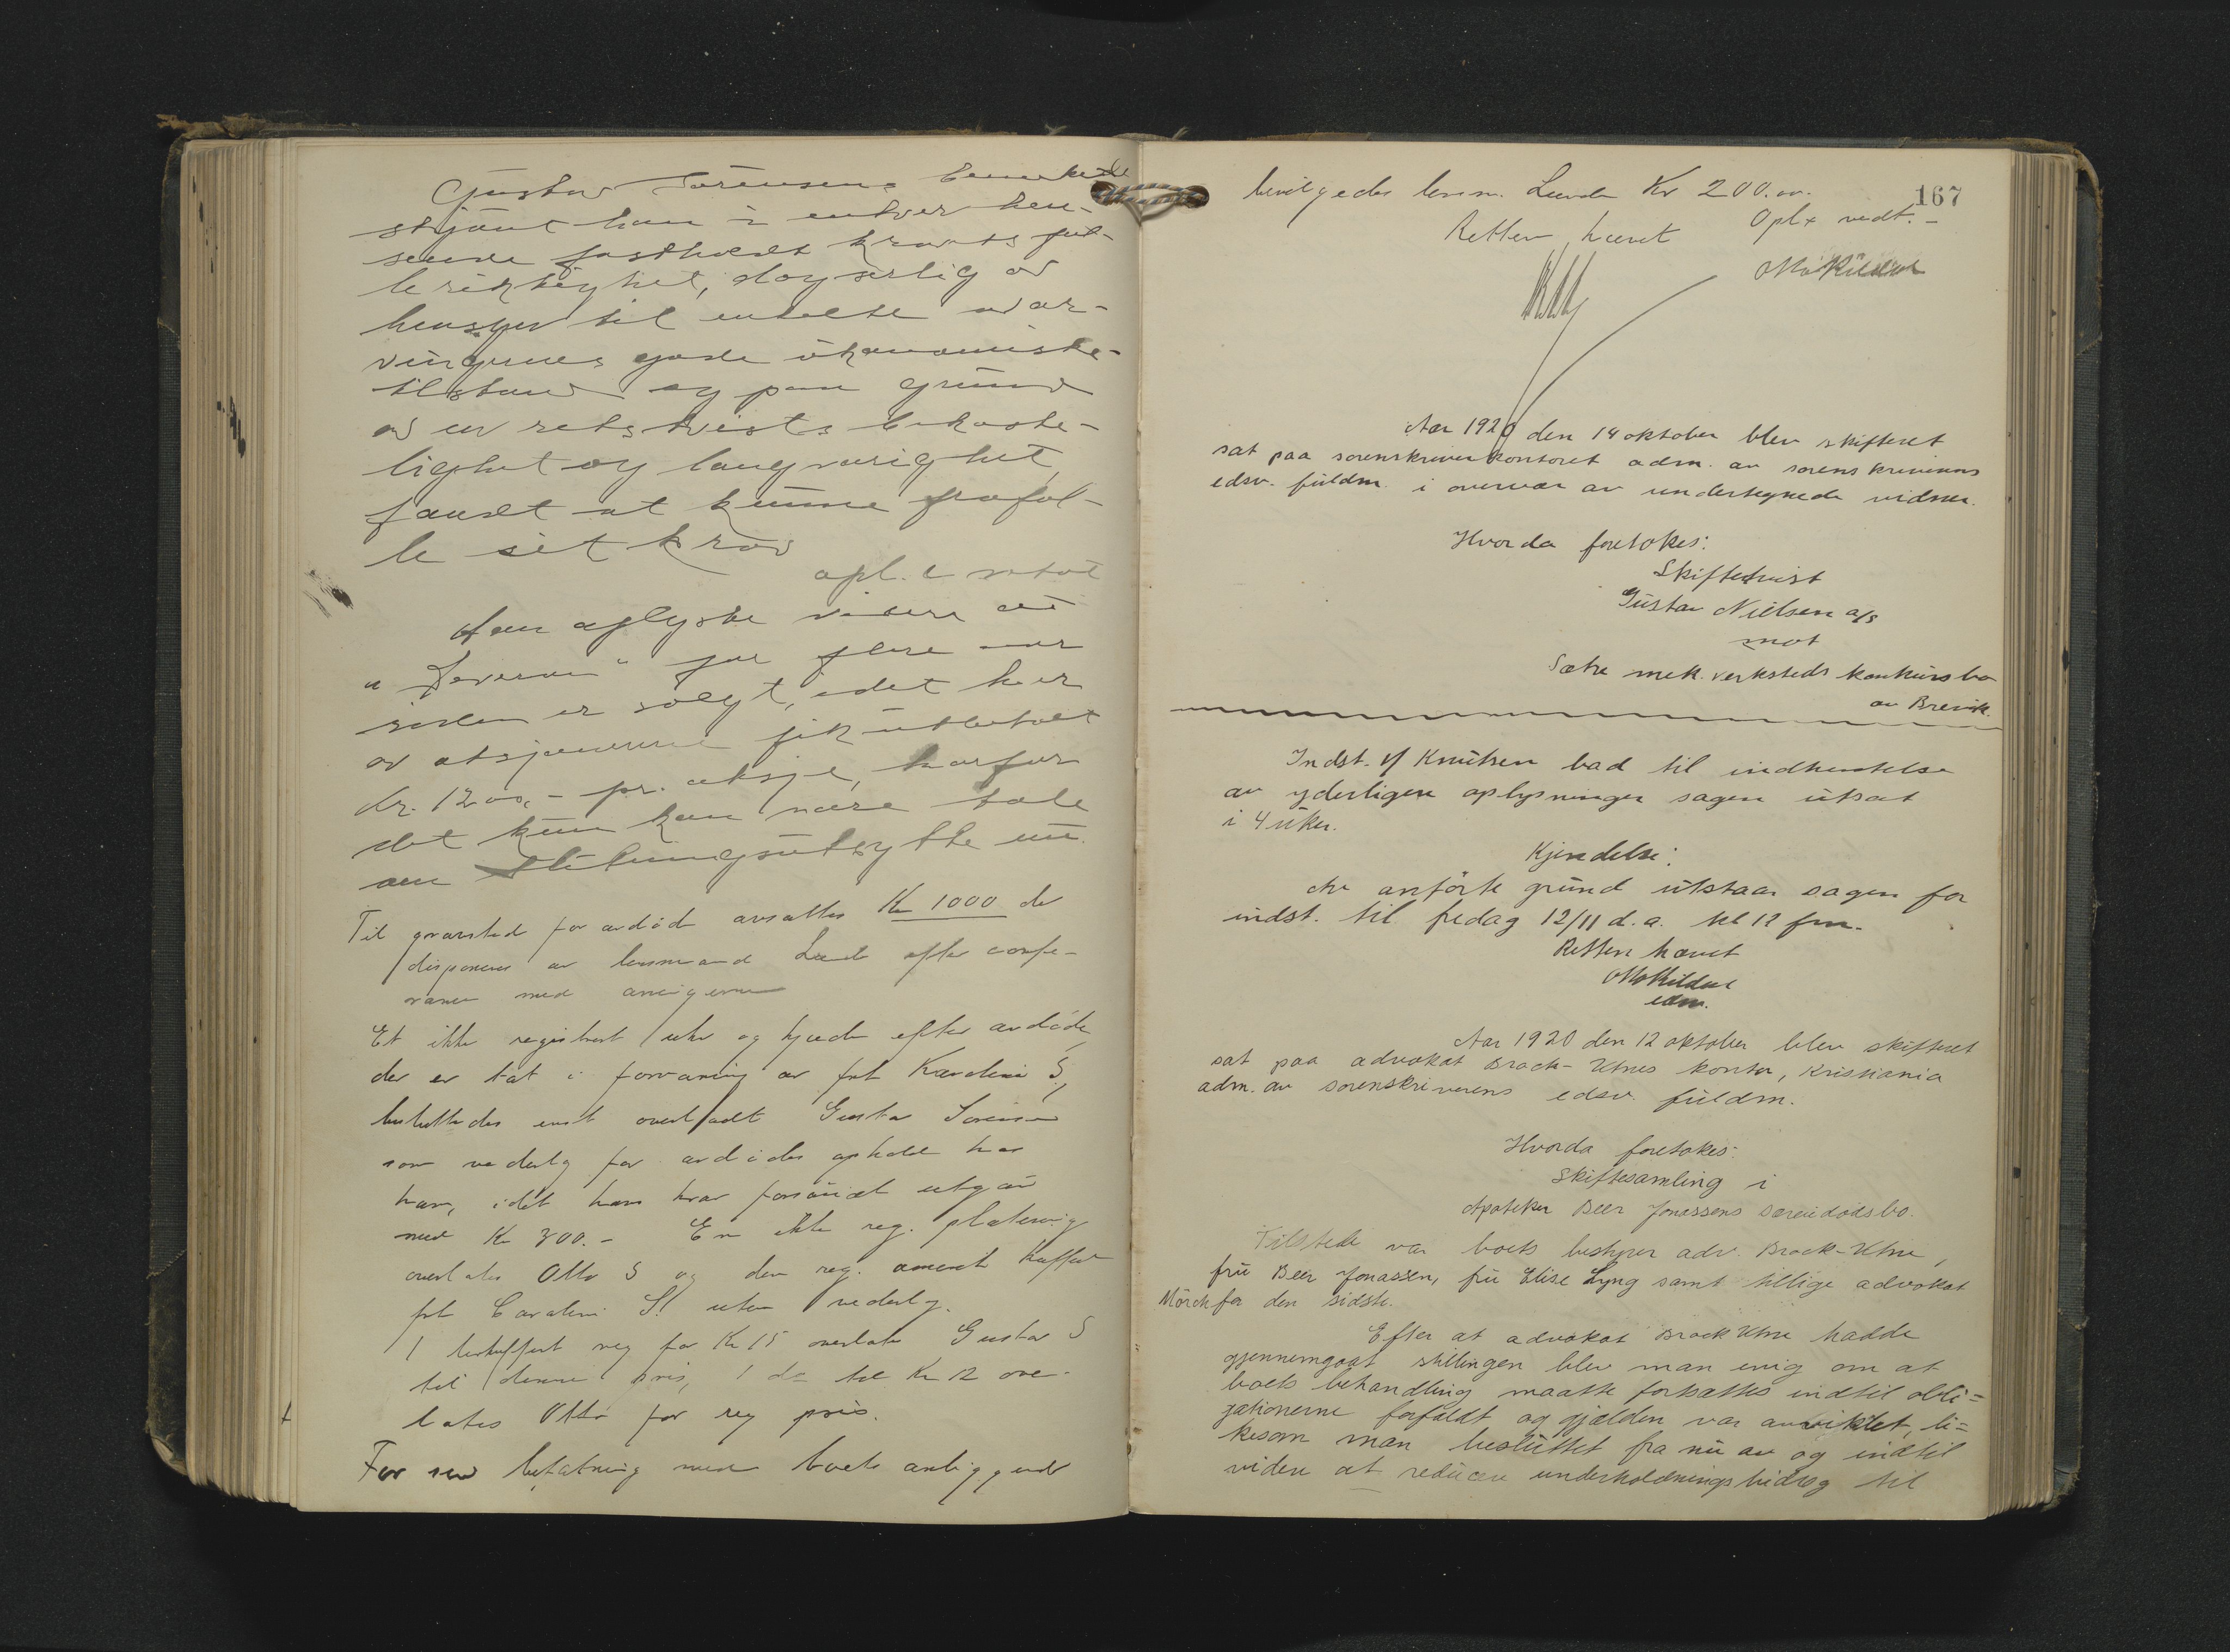 Gustav Sörensen bemerkede
skjönt han i enhver hen-
seende fastholdt kravets ful-
le rigtighet, dog særlig av
hensyn til enkelte av ar-
vingernes gode ökonomiske
tilstand og paa grund
av en retstvists bekoste-
lighet og langvarighet,
fandt at kunne frafal-
le sit krav
opl. & vedtat
Han oplyste videre at
" for flere aar
siden er solgt, idet hver
av aksjonærerne fik utbetalt
kr. 1200,- pr. aksje, hvorfor
det kun kan være tale
om slutningsutbytte nu.
Til gravsted for avdøde avsattes Kr 1000 der
disponeres av lensmand Lunde efter confe-
rance med arvingerne
Et ikke registrert uhr og kjæde efter avdøde
der er tat i forvaring av frk Karoline S.,
besluttedes overladt Gustav Sørensen
som vederlag for avdødes ophold hos
ham, idet hans krav forøvrig utgaar
med Kr 300.- En ikke reg.
overlates Otto S og den reg. kuffert
frk Caroline S. uten vederlag.
1 reg for Kr 15 overlates Gustav S
til denne pris, 1 do til Kr 12 over-
lates Otto for reg pris.
For sin befatning med boets anliggender
167
bevilgedes lensm. Lunde Kr 200.00.
Opl & vedt.-
Retten hævet
Aar 1920 den 14 oktober blev skifteret
sat paa sorenskriverkontoret adm. av sorenskriverens
edsv. fuldm. i overvær av undertegnede vidner.
Hvorda foretokes:
Skiftetvist
Gustav Nielsen a/s
mot
Sætre mek. verksteds konkursbo
av Brevik.
Indst. v/ Knutsen bad til indhentelse
av yderligere oplysninger sagen utsat
i 4 uker.
Kjendelse:
Av anförte grund utstaar sagen for
indst. til fredag 12/11 d.a. kl 12 fm.
Retten hævet
Otto Kildal
edsv.
Aar 1920 den 12 oktober blev skifteret
sat paa advokat Brock-Utnes kontor, Kristiania
adm. av sorenskriverens edsv. fuldm.
Hvorda foretokes:
Skiftesamling i
Apoteker Beer Jonassens særeiedødsbo.
Tilstede var boets bestyrer adv. Brock-Utne,
fru Beer Jonassen, fru Elise Lyng samt tillige advokat
Mörch for den sidste.
Efter at advokat Brock Utne hadde
gjennemgaat stillingen blev man enig om at
boets behandling maatte fortsattes indtil obli=
gationerne forfaldt og gjælden var avviklet, li=
kesom man besluttet fra nu av og indtil
videre at reducere underholdningsbidrag til